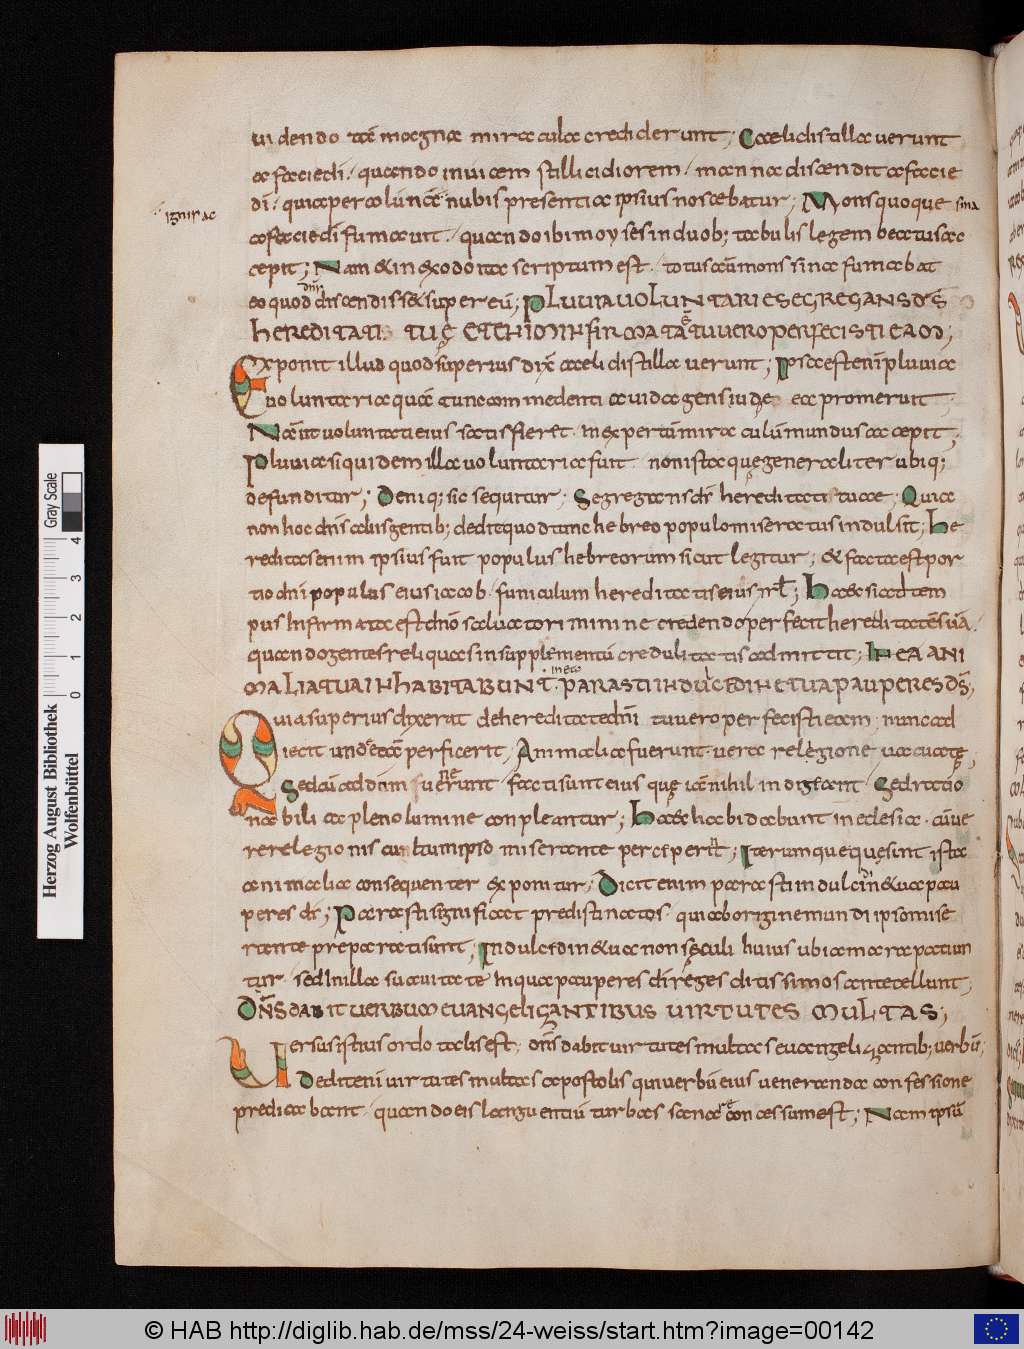 uidendo tã magna miracula crediderunt; Caeli distillaverunt
a facie dĩ; quando invicem stillicidiorem; manna discendit a facie
dĩ; quia per colũnã nubis presentia ipsius noscebatur; Mons quoque sina
ignir ac
a facie dĩ fumavit; quando ibi moyses in duob; tabulis legem beatus ac
cepit; Nam & in exodo ita scriptum est. totus autẽ mons sina fumabat
eo quod dñs discendiss& super eũ; PLUVIA VOLUNTARIE SEGREGANS DS̃
HEREDITATI TUĘ ETENIM INFIRMATA Ẽ TU VERO PERFECISTI EAM;
Exponit illud quod superius dix̃ caeli distillaverunt; Ipsa est enĩ pluvia
voluntaria quã tunc commedenti avida gens iudę ea promeruit;
Nã ut voluntati eius satisfier& inexpertũ miraculũ mundus accepit;
Pluvia siquidem illa voluntaria fuit non ista quę generaliter ubiq;
defunditur; Deniq; sic sequitur; Segregans ds̃ hereditati tuae; Quia
non hoc dñs aliis gentib; dedit quod tunc hebreo populo miseratus indulsit; He
reditas enim ipsius fuit populus hebreorum sicut legitur; & facta est por
tio dñi populus eius iacob funiculum hereditatis eius isrł; Haec sicad tem
pus Infirmata est dñõ salvatori minine credendo perfecit hereditatẽ suã.
quando gentes reliquas in supplementũ credulitatis admittit; IN EA ANI
MALIA TUA INHABITABUNT. in ea PARASTI IN DULCEDINE TUA PAUPERES DS̃;
Quia superius dixerat de hereditate dñi tu vero perfecisti eam; nunc ad
iecit unde eã perficerit; Animalia fuerunt vera relegione vacuatę,
Sed cũ ad dñm fuerunt facti sunt eius quę iã nihil indigeant; Sed ratio
nabili ac pleno lumine conpleantur; Haec habitabunt in eclesia. cũ ve
re relegionis cultum ipso miserante perceperit; Iterum que quę sunt ista
animalia consequenter exponitur; Dicit enim parasti in dulcidin& tua pau
peres ds̃; Parasti significat predistinatos. qui ab origine mundi ipso mise
rante preparati sunt; In dulcedin& tua non sęculi huius ubi amara patiun
tur. sed In illa suavitate In qua pauperes dĩ reges ditissimos antecellunt;
DÑS DABIT VERBUM EVANGELIZANTIBUS VIRTUTES MULTAS;
Versus istius ordo talis est; dñs dabit virtutes multas evangelizantib; verbũ;
Dedit enĩ virtutes multas apostolis qui verbũ eius veneranda confessione
predicabant. quando eis languentiũ turbas sanare concessum est; Nam ipsũ
Herzog August Bibliothek
Wolfenbüttel
Gray Scale
0 1 2 3 4
© HAB http://diglib.hab.de/mss/24-weiss/start.htm?image=00142